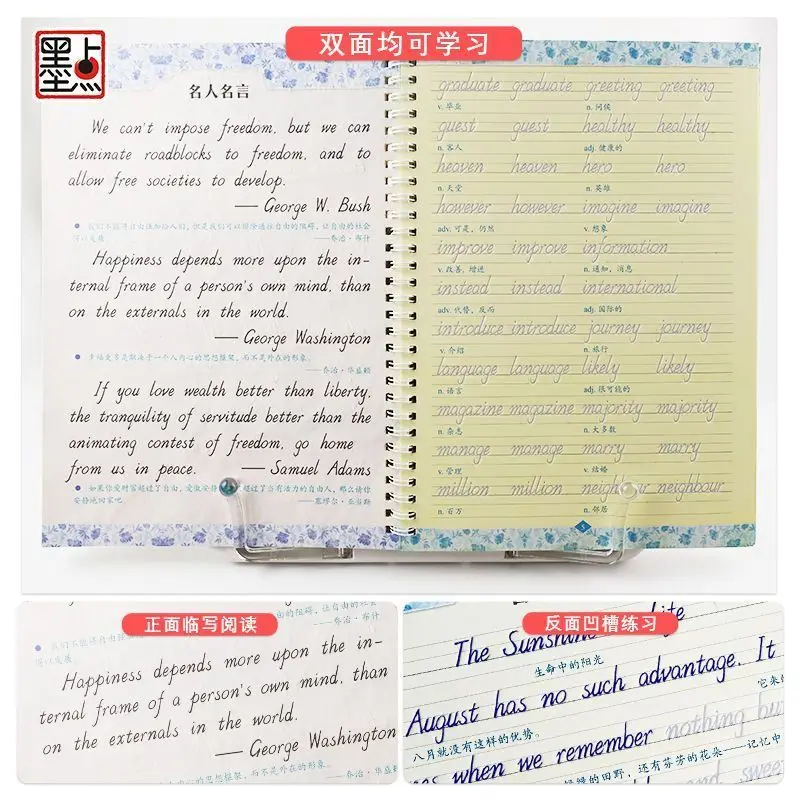 双面均可学习
墨点
名人名言
We can't impose freedom, but we can
eliminate roadblocks to freedom, and to
allow free societies to develop.
— George W. Bush
我们不能将自由强加给人们，但是我们可以排除通往自由的阻碍，让自由的社会
可以发展
——乔治·布什
Happiness depends more upon the in-
ternal frame of a person's own mind, than
on the externals in the world.
— George Washington
幸福更多是取决于一个人内心的思想框架，而不是外在的形象。
——乔治·华盛顿
If you love wealth better than liberty,
the tranquility of servitude better than the
animating contest of freedom, go home
from us in peace. — Samuel Adams
如果你爱财富超过了自由，爱做安
超过了当有活力的自由人，那么请你
安静地回家吧
——塞缪尔·亚当斯
graduate graduate greeting greeting
v. 毕业 n. 问候
guest guest healthy healthy
n. 客人 adj. 健康的
heaven heaven hero hero
n. 天堂 n. 英雄
however however imagine imagine
adv. 可是，仍然 v. 想象
improve improve information
v. 改善，增进 n. 通知，消息
instead instead international
adv. 代替，反而 adj. 国际的
introduce introduce journey journey
v. 介绍 n. 旅行
language language likely likely
n. 语言 adj. 很可能的
magazine magazine majority majority
n. 杂志 n. 大多数
manage manage marry marry
v. 管理 v. 结婚
million million neighbour neighbour
n. 百万 n. 邻居
5
正面临写阅读
的阻碍，让自由的社会
——乔治·布什
Happiness depends more upon the in-
ternal frame of a person's own mind, than
on the externals in the world.
— George Washington
人内心的思想框架，而不是外在的形象。
——乔治·华盛顿
反面凹槽练习
The Sunshine Life
生命中的阳光
August has no such advantage. It
八月就没有这样的优势。 它来
when we remember nothing bu
的田野，还有芬芳的花朵——记忆中
and sweet